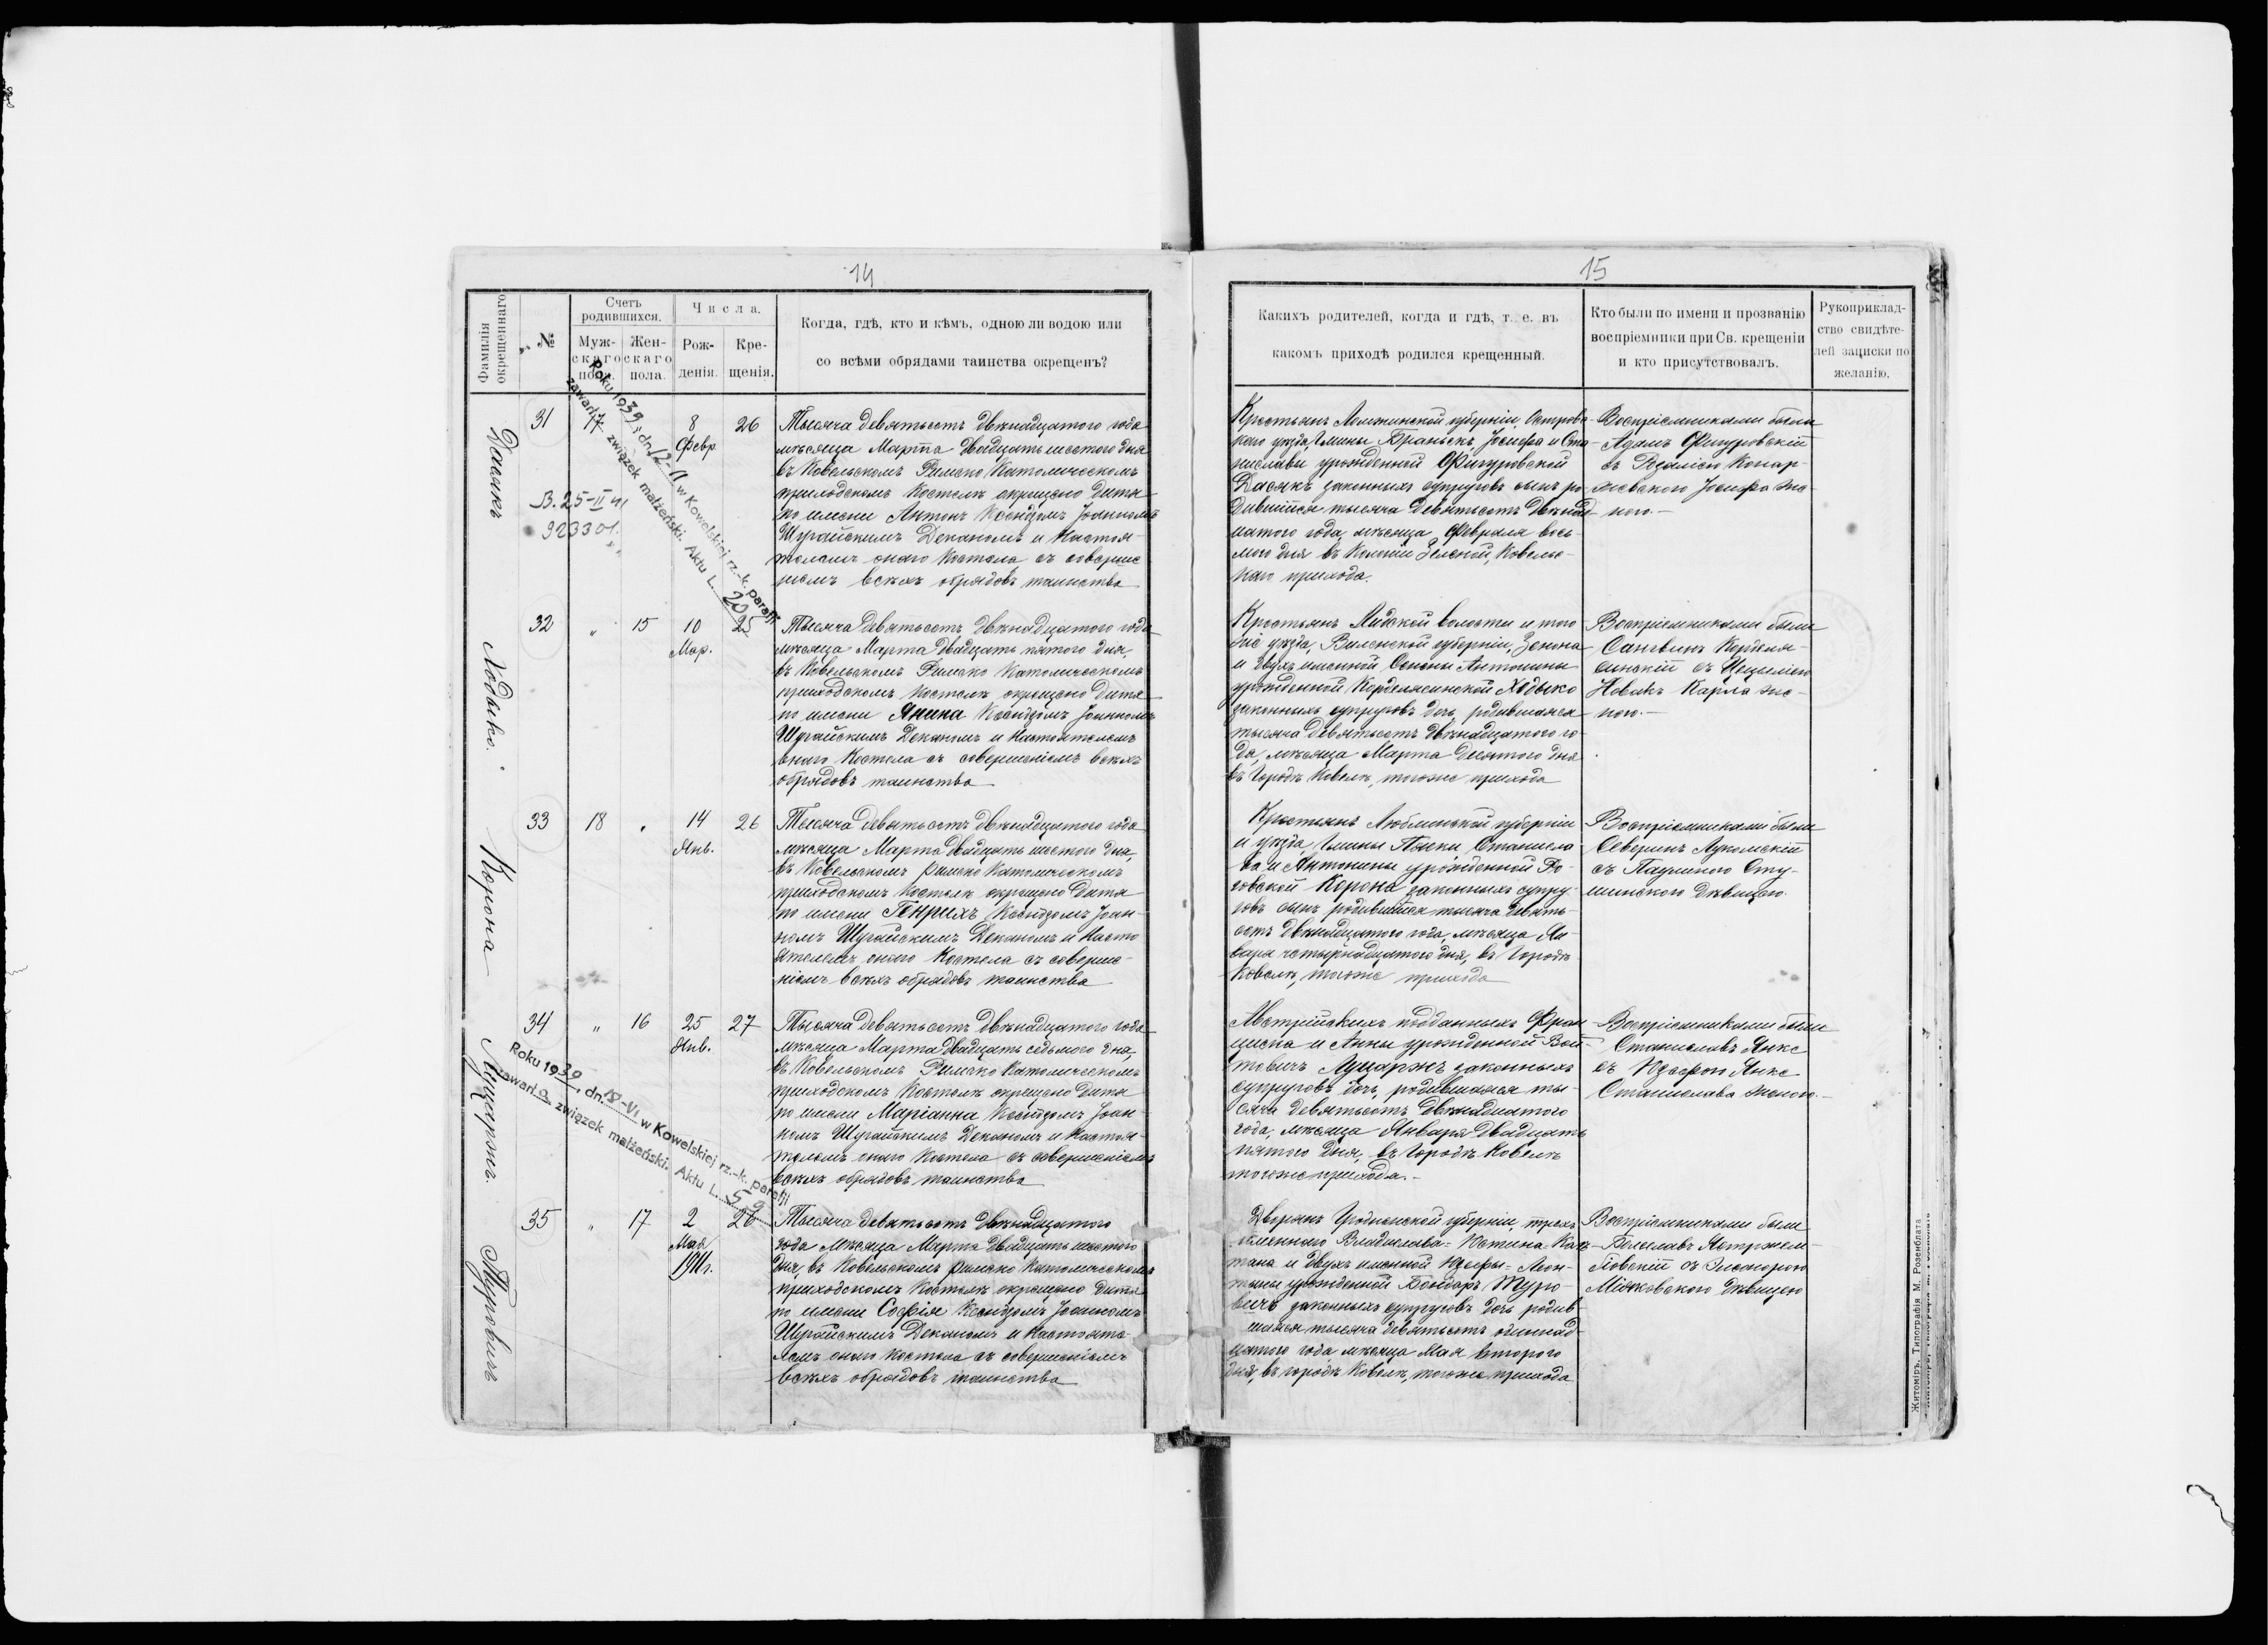 14
Фамилія окрещеннаго
№
Счетъ родившихся.
Муж-скаго пола.
Жен-скаго пола.
Числа.
Рож-денія.
Кре-щенія.
Когда, гдѣ, кто и кѣмъ, одною ли водою или
со всѣми обрядами таинства окрещенъ?
Дасякъ
31
17
8
Февр.
26
В. 25-II 41
923301.
Roku 1939, dn. 12-II w Kowelskiej rz.-k. parafji
zawarł związek małżeński. Aktu L. 20
Тысяча девятьсотъ двѣнадцатого года
мѣсяца Марта двадцать шестого дня
въ Ковельскомъ Римско Католическомъ
приходскомъ Костелѣ окрещено дитя
по имени Антонъ Ксендзомъ Іоанномъ
Шурайскимъ Деканомъ и Настоя-
телемъ онаго Костела съ соверше-
ніемъ всѣхъ обрядовъ таинства
Ходыко.
32
"
15
10
Мар.
25
Тысяча девятьсотъ двѣнадцатого года
мѣсяца Марта двадцать пятого дня,
въ Ковельскомъ Римско Католическомъ
приходскомъ Костелѣ окрещено дитя
по имени Янина Ксендзомъ Іоанномъ
Шурайскимъ Деканомъ и Настоятелемъ
онаго Костела съ совершеніемъ всѣхъ
обрядовъ таинства
Корона
33
18
"
14
Янв.
26
Тысяча девятьсотъ двѣнадцатого года
мѣсяца Марта двадцать шестого дня,
въ Ковельскомъ Римско Католическомъ
приходскомъ Костелѣ окрещено дитя
по имени Генрихъ Ксендзомъ Іоан-
номъ Шурайскимъ Деканомъ и Насто
ятелемъ онаго Костела съ соверше-
ніемъ всѣхъ обрядовъ таинства
Луцаржъ.
34
"
16
25
Янв.
27
Roku 1939, dn. 18-VI w Kowelskiej rz.-k. parafji
zawarła związek małżeński. Aktu L. 59
Тысяча девятьсотъ двѣнадцатого года
мѣсяца Марта двадцать седьмого дня,
въ Ковельскомъ Римско Католическомъ
приходскомъ Костелѣ окрещено дитя
по имени Маріанна Ксендзомъ Іоан-
номъ Шурайскимъ Деканомъ и Настоя-
телемъ онаго Костела съ совершеніемъ
всѣхъ обрядовъ таинства
Туровичъ
35
"
17
2
Мая
1911г.
26
Тысяча девятьсотъ двѣнадцатого
года мѣсяца Марта двадцать шестого
дня, въ Ковельскомъ Римско Католическомъ
приходскомъ Костелѣ окрещено дитя
по имени Софія Ксендзомъ Іоанномъ
Шурайскимъ Деканомъ и Настояте-
лемъ онаго Костела съ совершеніемъ
всѣхъ обрядовъ таинства
15
Какихъ родителей, когда и гдѣ, т. е. въ
какомъ приходѣ родился крещенный.
Кто были по имени и прозванію
воспріемники при Св. крещеніи
и кто присутствовалъ.
Рукоприклад-
ство свидѣте-
лей записки по
желанію.
Крестьянъ Ломжинской губерніи, Островс-
каго уѣзда, Гмины Браньскъ, Іосифа и Ста-
ниславы урожденной Фигуровской
Дасякъ законныхъ супруговъ сынъ ро-
дившійся тысяча девятьсотъ двѣнад-
цатого года, мѣсяца Февраля вось-
мого дня въ Колоніи Зеленой, Ковельс-
каго прихода.
Воспріемниками были
Адамъ Фигуровскій
съ Розаліею Конар-
жевскаго Іосифа же-
ною.
Крестьянъ Лидской волости и того
же уѣзда, Виленской губерніи, Зенона
и двухъ именной Антонины
урожденной Корделясинской Ходыко
законныхъ супруговъ дочь, родившаяся
тысяча девятьсотъ двѣнадцатого го-
да, мѣсяца Марта десятого дня
въ Городѣ Ковелѣ, тогоже прихода
Воспріемниками были
Корделя-
синскій съ Цецыліею
Новакъ Карла же-
ною.
Крестьянъ Люблинской губерніи
и уѣзда, Гмины Пяски, Станисла-
ва и Антонины урожденной Ро-
говской Корона законныхъ супру-
говъ сынъ родившійся тысяча девять-
сотъ двѣнадцатого года, мѣсяца Ян-
варя четырнадцатого дня, въ Городѣ
Ковелѣ, тогоже прихода
Воспріемниками были
Северинъ Лукомскій
съ Паулиною Сту-
шинского дѣвицею.
Австрійскихъ подданныхъ Фран-
циска и Анны урожденной Вой-
товичъ Луцаржъ законныхъ
супруговъ дочь, родившаяся ты-
сяча девятьсотъ двѣнадцатого
года, мѣсяца Января двадцать
пятого дня, въ Городѣ Ковелѣ
тогоже прихода.
Воспріемниками были
Станиславъ Янкс
съ Юзефою Янкс
Станислава женою.
Дворянъ Гродненской губерніи, трехъ
именнаго Владислава-Юстина-Каэ-
тана и двухъ именной Юзефы-Леон-
тины урожденной Бондаръ Туро-
вичъ законныхъ супруговъ дочь родив-
шаяся тысяча девятьсотъ одиннад-
цатого года мѣсяца Мая второго
дня, въ городѣ Ковелѣ, тогоже прихода
Воспріемниками были
Болеславъ Ястржем-
бовскій съ Элеонорою
дѣвицею
Житоміръ, Типографія М. Розенблата